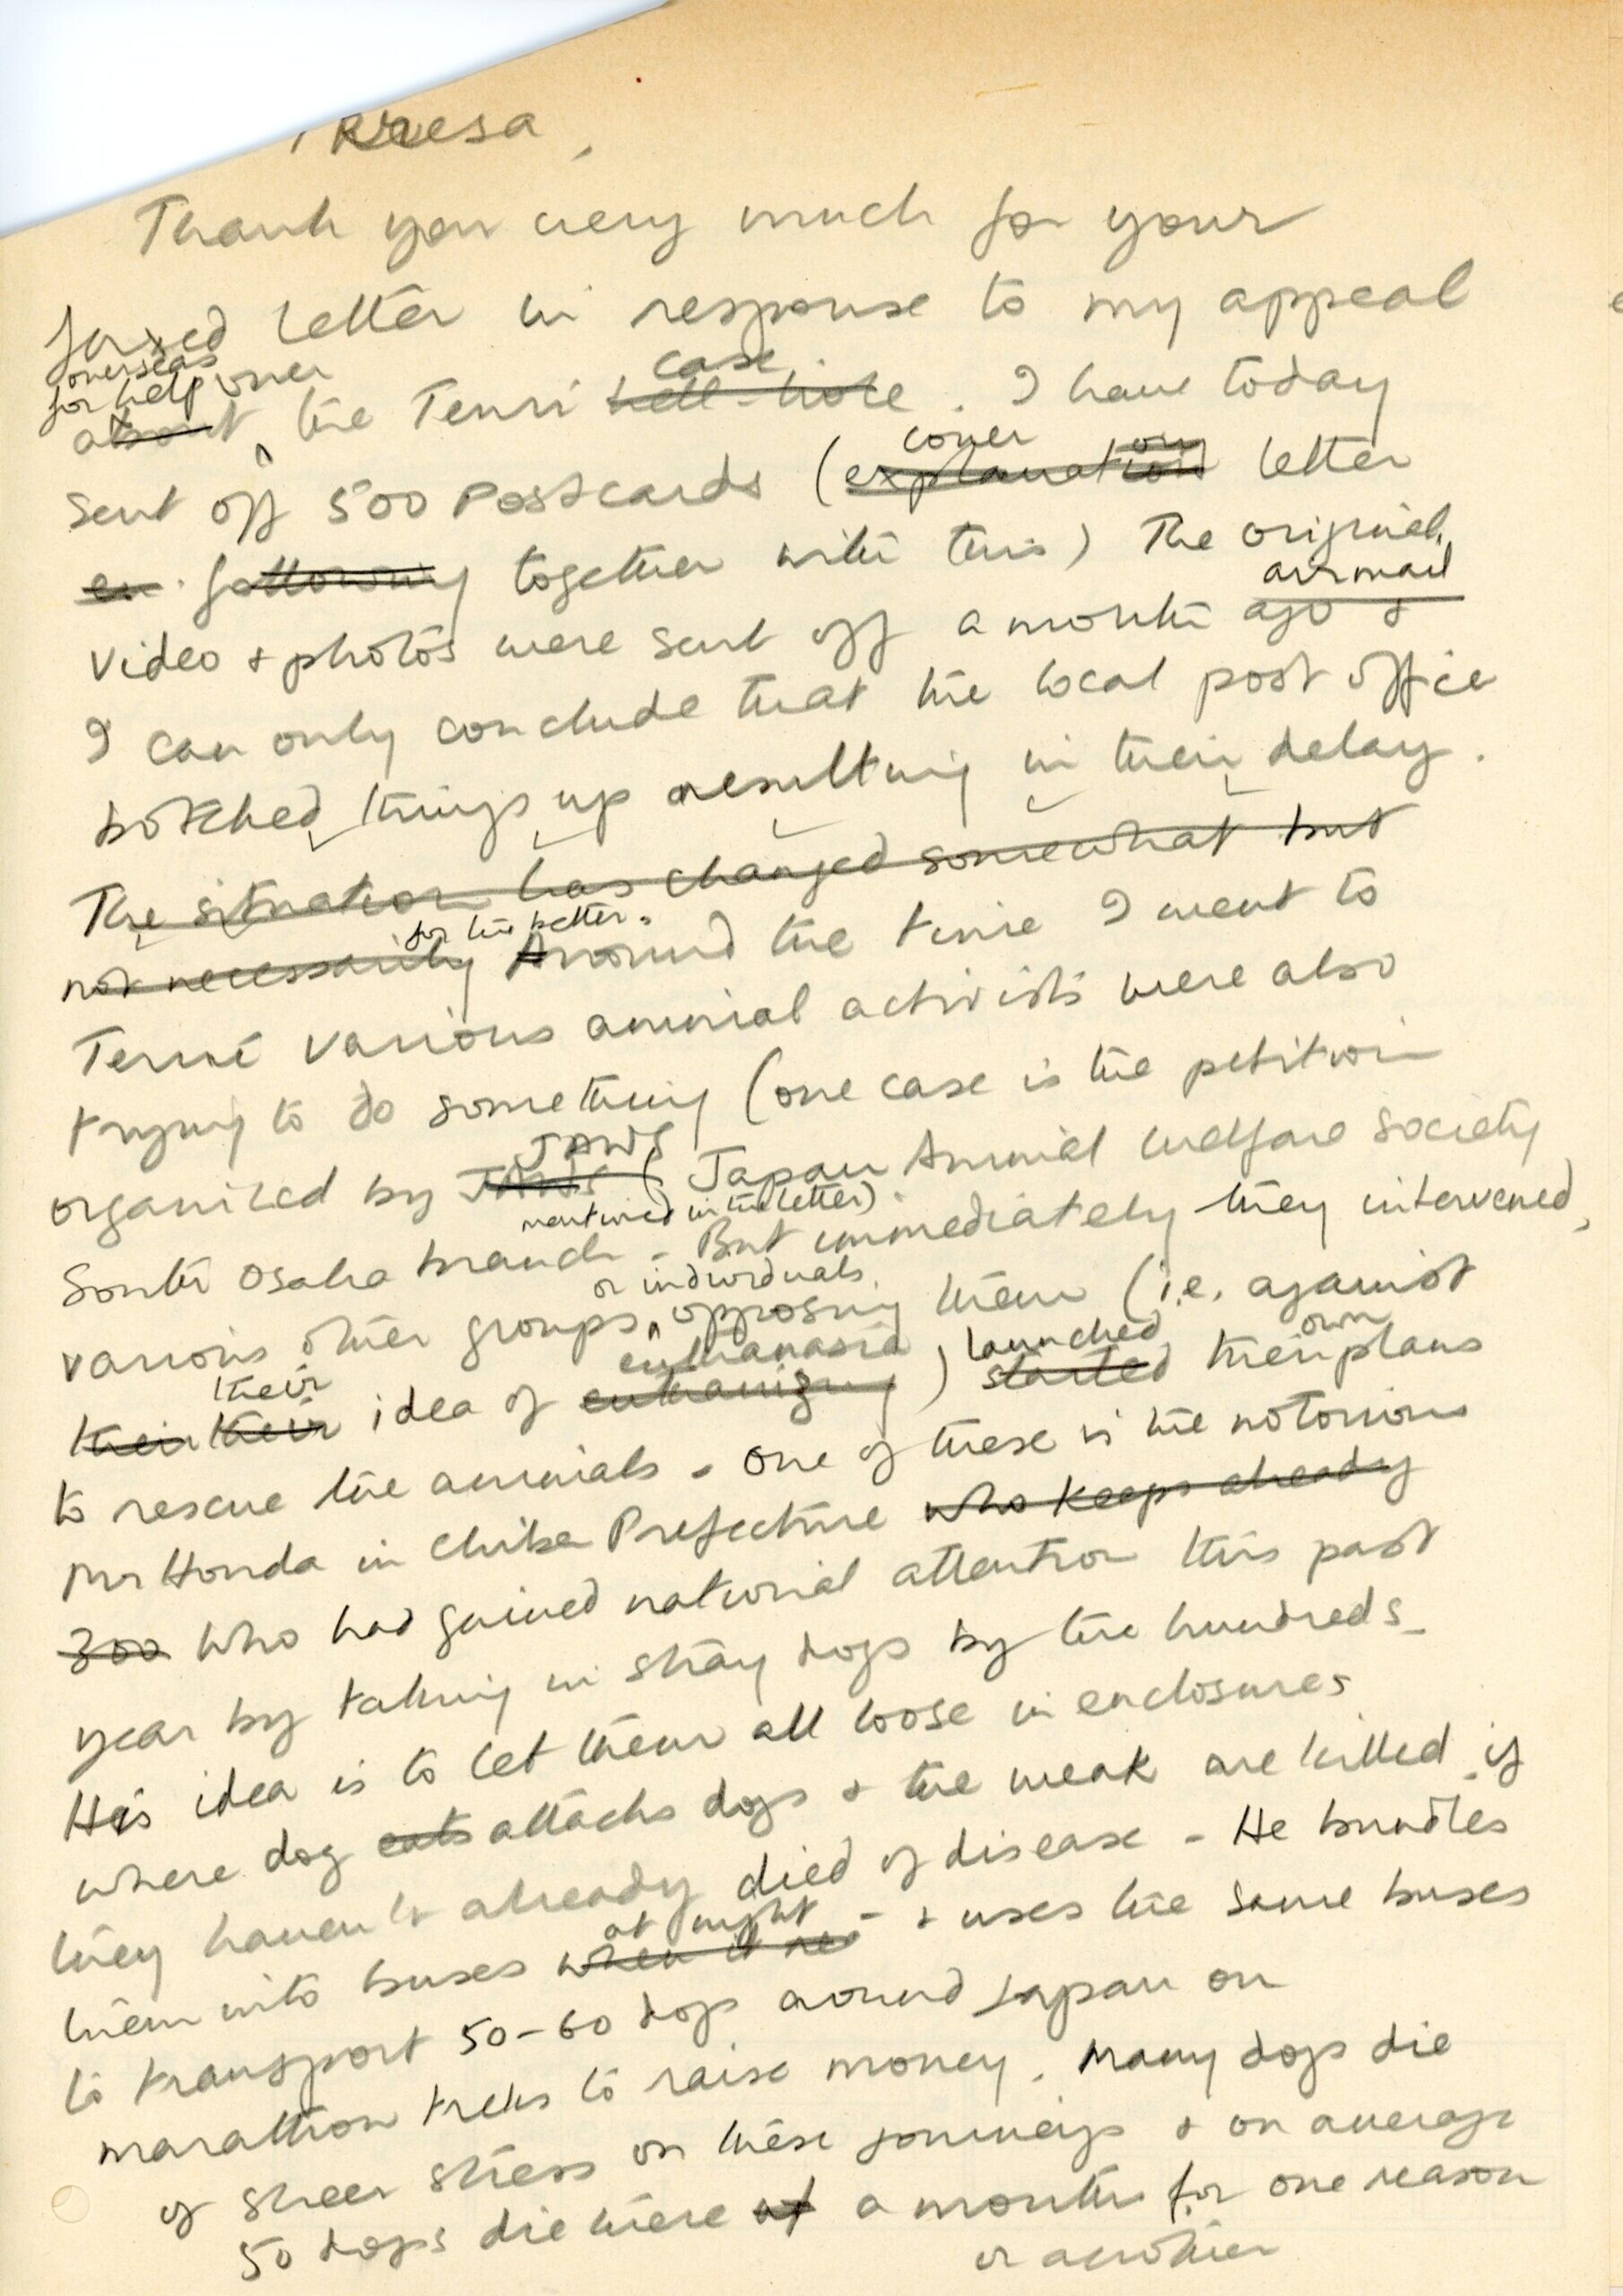 Theresa,
Thank you very much for your
faxed letter in response to my appeal
overseas
for help over
about the Tenri hell-hole case. I have today
sent off 500 postcards (explanation cover letter
en. following together with this) The original
airmail
video + photos were sent off a month ago &
I can only conclude that the local post office
botched things up resulting in their delay.
The situation has changed somewhat but
not necessarily for the better. Around the time I went to
Tenri various animal activists were also
trying to do something (one case is the petition
organized by JAWS ( JAWS Japan Animal Welfare Society
mentioned in the letter)
South Osaka branch - But immediately they intervened,
various other groups or individuals, opposing them (i.e. against
their their their idea of euthanizing euthanasia) started launched their own plans
to rescue the animals - One of these is the notorious
Mr Honda in Chiba Prefecture who keeps already
300 who had gained national attention this past
year by taking in stray dogs by the hundreds -
His idea is to let them all loose in enclosures
where dog eats attacks dogs + the weak are killed if
they haven't already died of disease - He bundles
them into buses when it at night - + uses the same buses
to transport 50-60 dogs around Japan on
marathon treks to raise money. Many dogs die
of sheer stress on these journeys + on average
50 dogs die there at a month for one reason
or another